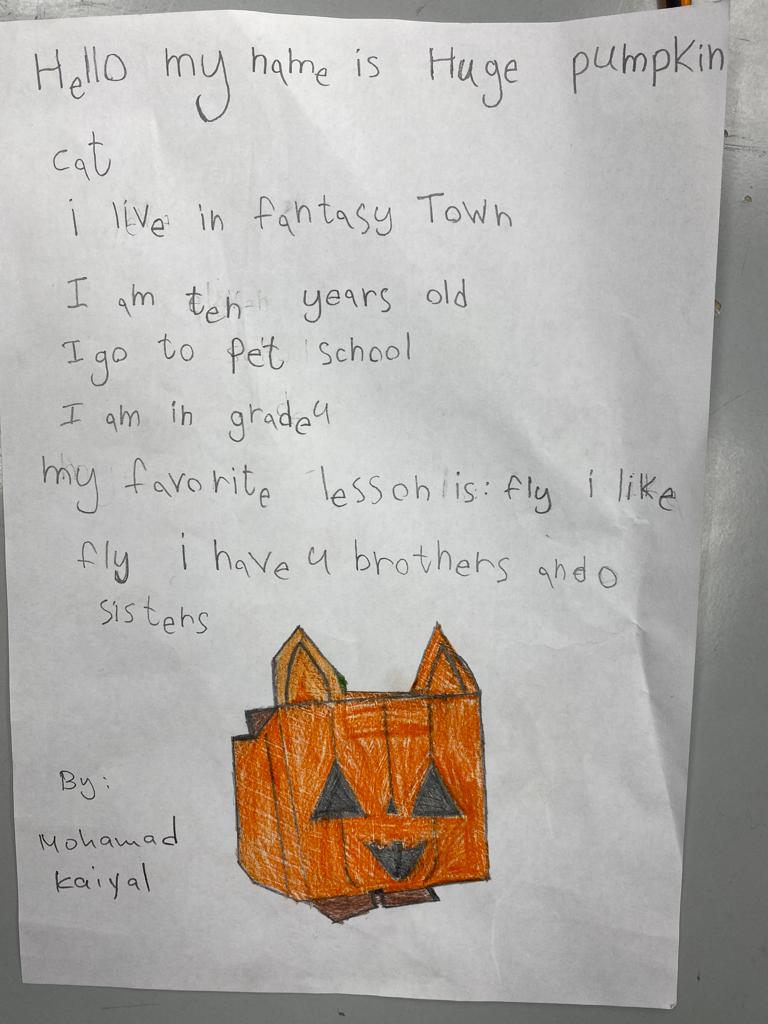 Hello my name is Huge pumpkin
cat
i live in fantasy Town
I am ten years old
I go to pet school
I am in grade 4
my favorite lesson is: fly i like
fly i have 4 brothers and 0
sisters
By:
Mohamad
kaiyal